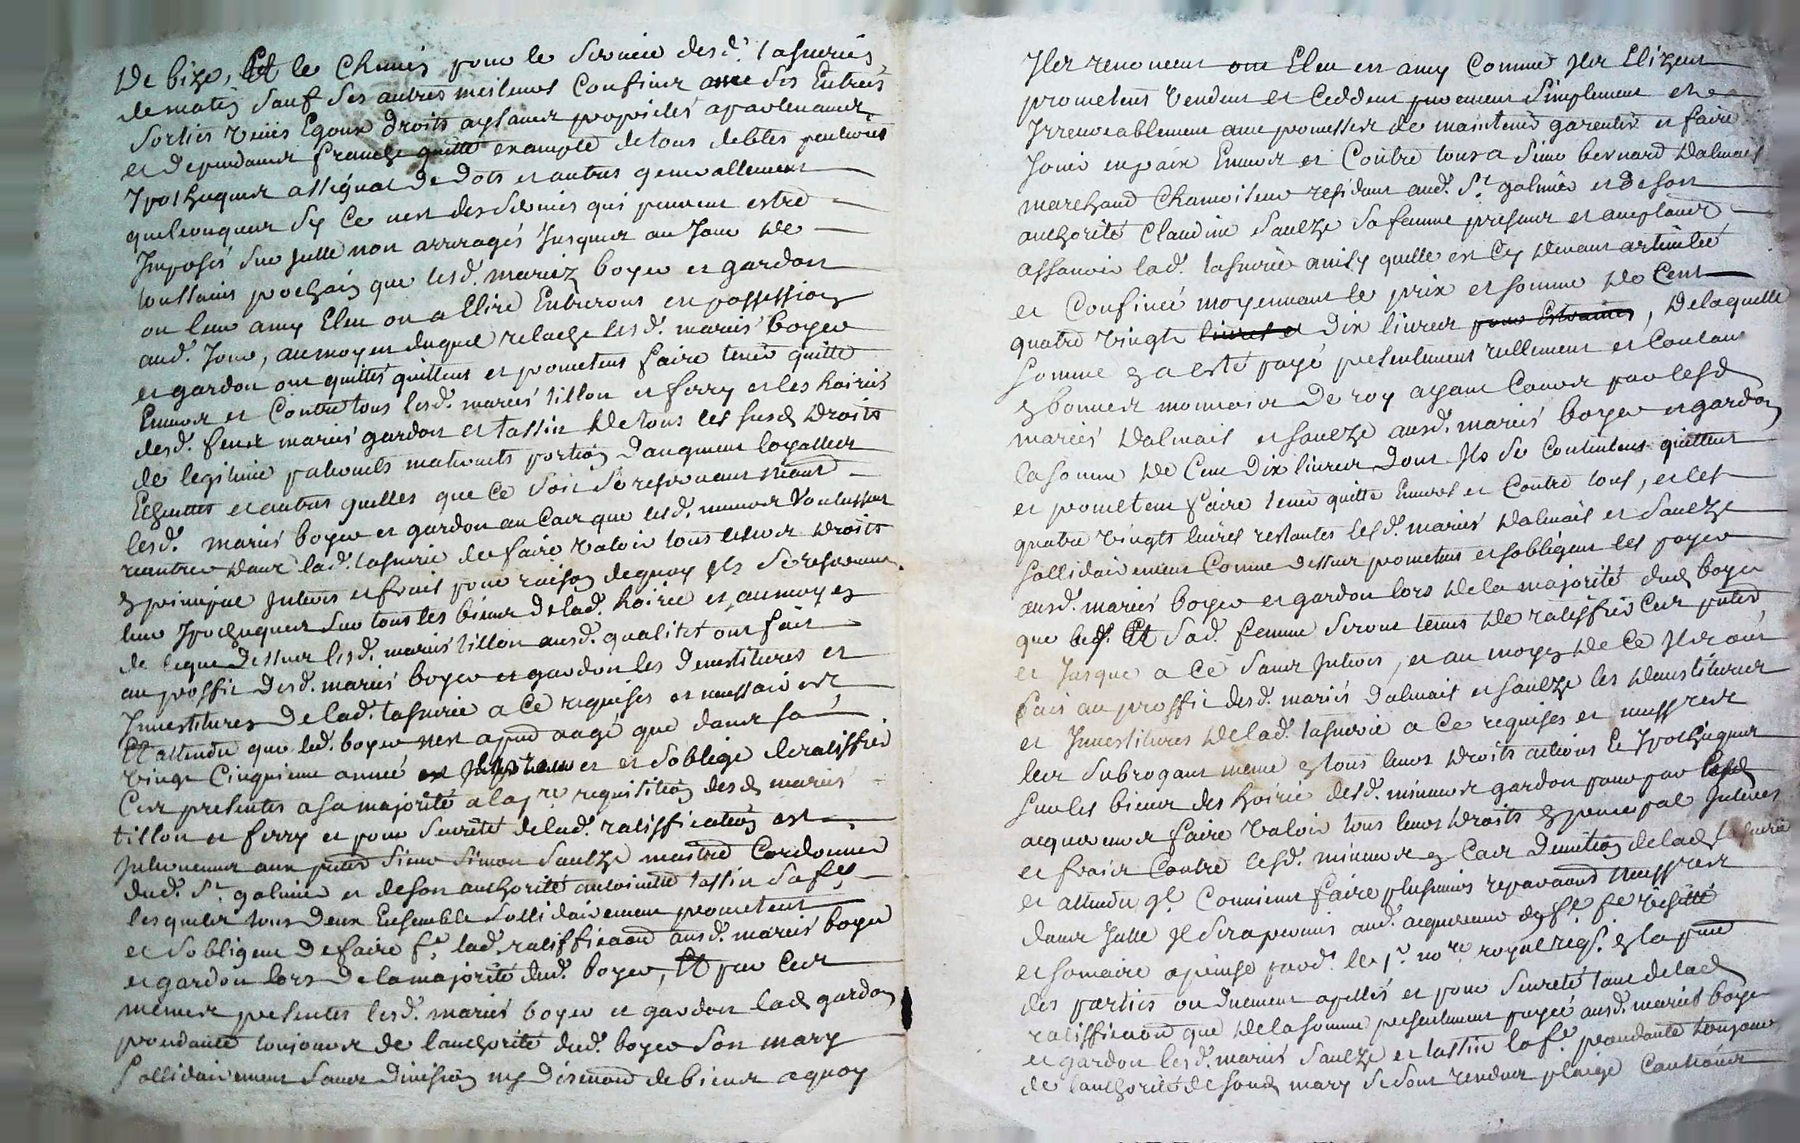 De bize, Et le Chemin pour le service desd. tasneries
de matin sauf ses autres meilleurs Confins avec ses Entrées
Sorties veües Egoux droits aysances proprietés apartenances
et dependances franche quitte exampte de tous debtes pentions
Ypotheques assignat de dots et autres generallement
quelconques sy ce nest des servis qui peuvent estre
Imposés sur Jcelle non arreragés Jusques au Jour de
toussains prochain que lesd. mariez boyer et gardon
ou leur amy Eleu ou a Elire Entreront en possession
aud. Jour, aumoyen duquel relache lesd. mariés boyer
et gardon ont quittés quittent et prometent faire tenir quitte
Envers et Contre tous lesd. mariés tillon et ferry et les hoiries
desd. feux mariés gardon et tassin de tous les susd droits
de legitime paternels maternels portion daugment loyallier
Echeuttes et autres quelles que ce soit se reservant neant
lesd. mariés boyer et gardon au Cas que lesd. mineurs voulussent
rentrer dans lad. tasnerie de faire valoir tous leurs droits
en principal Interets et frais pour raison dequoy Jls se reservent
leur Ypotheques sur tous les biens de lad. hoirie et aumoyen
de ceque dessus lesd. mariés tillon ausd. qualités ont fait
au proffit desd. mariés boyer et gardon les devestitures et
Jnvestitures de lad. tasnerie a ce requises et necessaires
Et attendu que led. boyer nest apresent aagé que dans sa
vingt Cinquieme année et soblige de ratiffier
Ces presentes a sa majorité a la pre requisition desd mariés
tillon et ferry et pour seureté de lad. ratiffication est
Jntervenus aux pntes sieur simon sauzé maistre Cordonnier
dud. St galmier et de son authorité antoinette tassin sa fe
lesquels tous deux Ensemble sollidairement prometent
et sobligent de faire fe lad. ratiffication ausd. mariés boyer
et gardon lors de la majorité dud. boyer, Et par Ces
mêmes presentes lesd. mariés boyer et gardon lad gardon
procedante toujours de lauthorité dud. boyer son mary
Sollidairement sans division ny discution de biens a quoy
Jls renoncent ou Eleu en amy Comme Jls Elizent
prometent vendent et Ceddent purement simplement et
Jrrevocablement avec promesse de maintenir garentir et faire
Jouir en paix Envers et Contre tous a sieur bernard dalmais
marchand Chamoiseur residant aud. St galmier et de son
authorité Claudine sauzé sa femme presents et acceptants
assavoir lad. tasnerie ainsy quelle est Cy devant articulée
et Confinée moyennant le prix et somme de Cent
quatre vingts dix livres, de laquelle
somme en a esté payé presentement reellement et Contant
en bonnes monnoies de roy ayant Cours par lesd
mariés dalmais et sauzé ausd. mariés boyer et gardon
la somme de Cent dix livres dont Jls se Contentent quittent
et prometent faire tenir quitte Envers et Contre tous, et les
quatre vingts livres restantes lesd. mariés dalmais et sauzé
sollidairement Comme dessus prometent et sobligent les payer
ausd. mariés boyer et gardon lors de la majorité dud boyer
que led. Et sad. femme seront tenus de ratiffier Ces pntes
et Jusque a ce sans Jnterets, et au moyen de ce Jls ont
fait au proffit desd. mariés dalmais et sauzé les devestitures
et Jnvestitures de lad. tasnerie a ce requises et necessres
les subrogant meme en tous leurs droits actions et Ypotheques
sur les biens des hoirie desd. mineurs gardon pour par lesd
acquereurs faire valoir tous leurs droits en principal Jnterets
et frais Contre lesd. mineurs en Cas deviction de lad tasnerie
et attendu ql Convient faire plusieurs reparaons necessres
dans Jcelle Jl sera permis aud. acquereur de fe fe visitte
et somaire aprinse pard. le pr. nore. royal regs. en la pnce
des parties ou duement apellés et pour seureté tant de lad
ratiffication que de la somme presentement payée ausd. mariés boyer
et gardon lesd. mariés sauzé et tassin la fe procedante toujours
de lauthorité de sond mary se sont rendus pleige Cautions